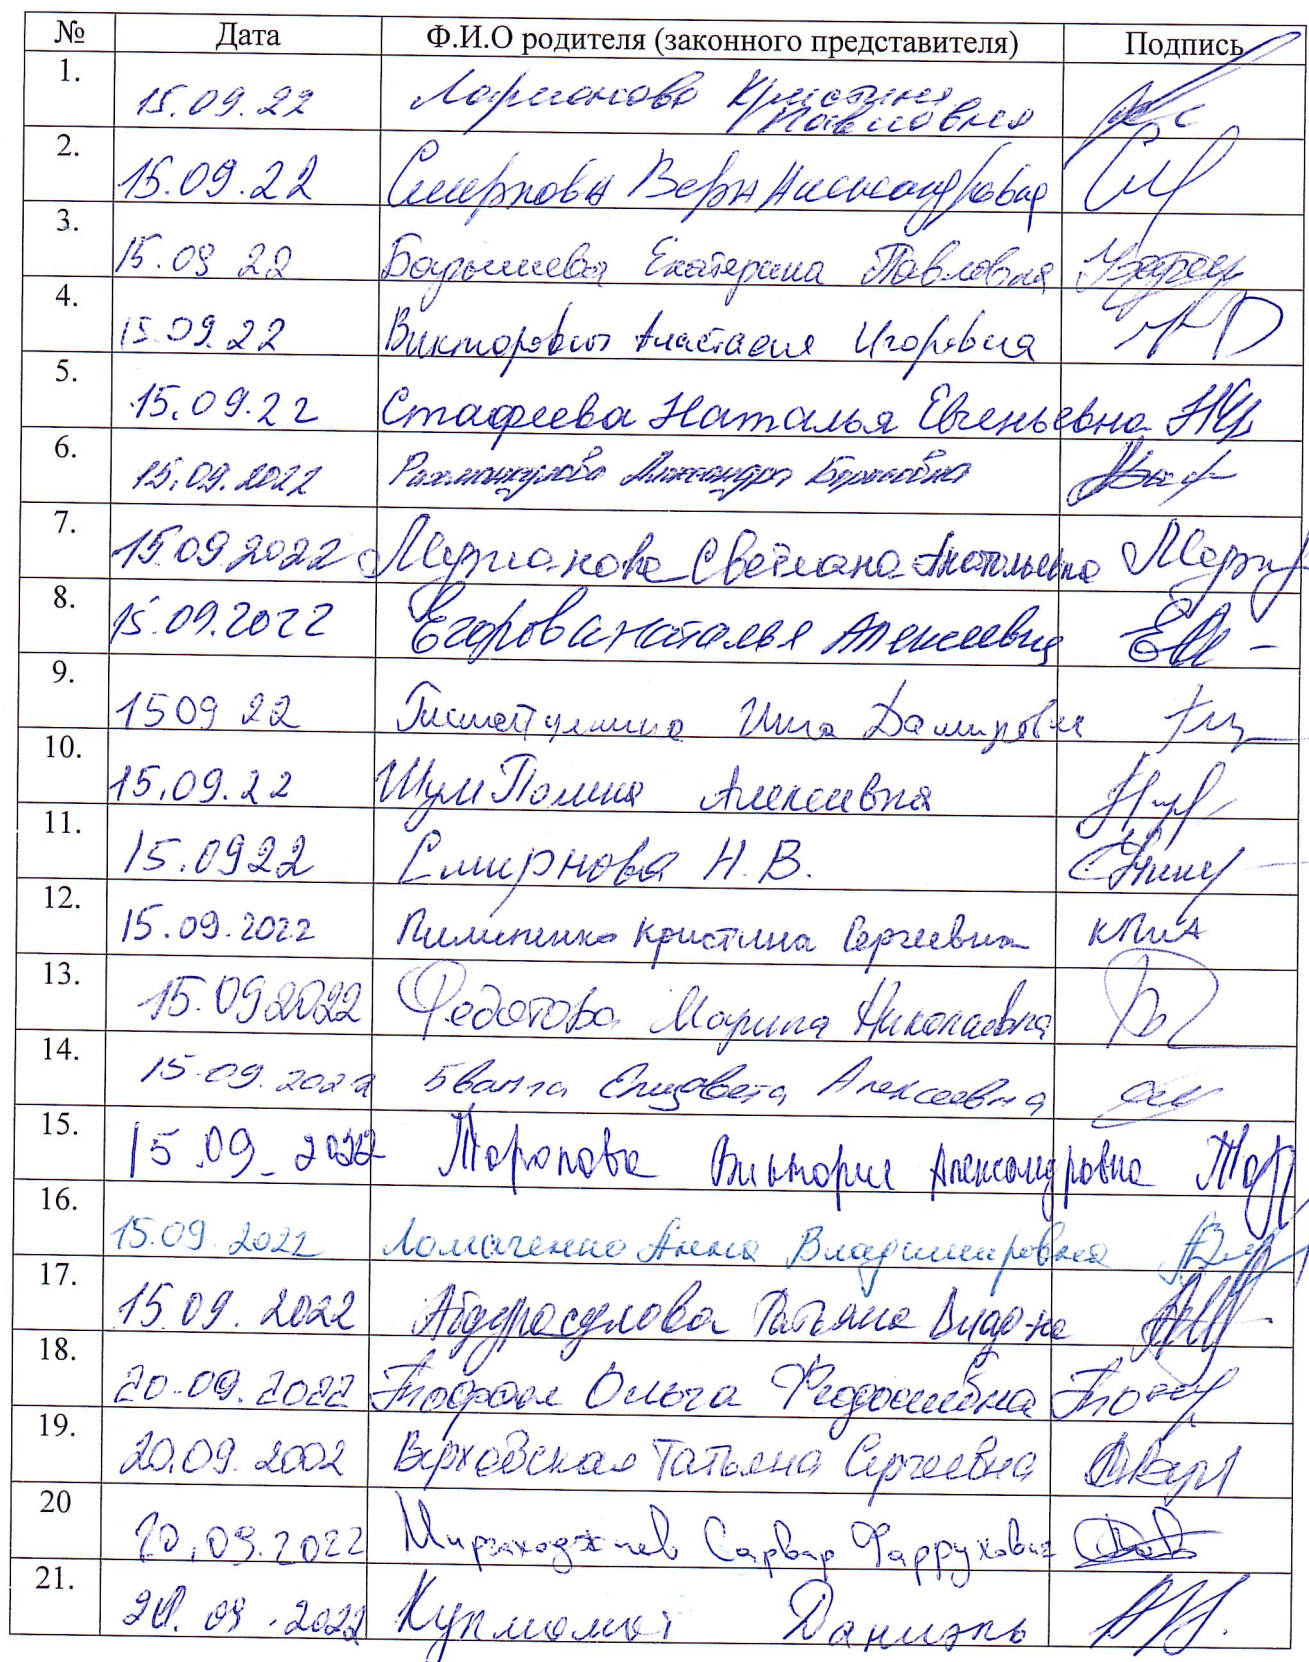 № Дата Ф.И.О родителя (законного представителя) Подпись
1. 15.09.22 Ларионова Кристина
Павловна
2. 15.09.22 Смирнова Вера Александровна
3. 15.09 22 Екатерина Павловна
4. 15.09.22 Анастасия Игоревна
5. 15.09.22 Стафеева Наталья Евгеньевна
6. 15.09.2022 Рахманкулова Александра Борисовна
7. 15.09 2022 Светлана Анатольевна
8. 15.09.2022 Егорова Наталья Алексеевна
9. 15 09 22 Дамировна
10. 15.09.22 Шум Полина Алексеевна
11. 15.09 22 Смирнова Н.В.
12. 15.09.2022 Пилипенко Кристина Сергеевна
13. 15.09 2022 Федотова Марина Николаевна
14. 15.09.2022 Елизавета Алексеевна
15. 15.09. 2022 Торопова Виктория Александровна
16. 15.09.2022 Ломаченко Анна Владимировна
17. 15.09.2022 Абдурасулова Татьяна
18. 20.09.2022 Ольга
19. 20.09.2002 Верховская Татьяна Сергеевна
20 20.09.2022 Сарвар Фаррухович
21. 09.2022 Даниэль